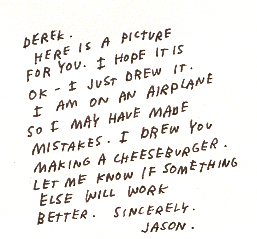 DEREK.
HERE IS A PICTURE
FOR YOU. I HOPE IT IS
OK - I JUST DREW IT.
I AM ON AN AIRPLANE
SO I MAY HAVE MADE
MISTAKES. I DREW YOU
MAKING A CHEESEBURGER.
LET ME KNOW IF SOMETHING
ELSE WILL WORK
BETTER. SINCERELY.
JASON.